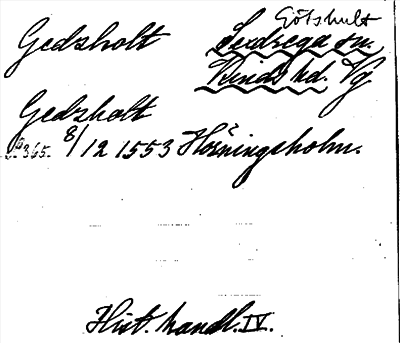 Götshult
Gedsholt Sudrega sn.
Kinds hd. Vg
Gedsholt
s. 365. 8/12 1553 Hörningsholm.
Hist. handl. IV.